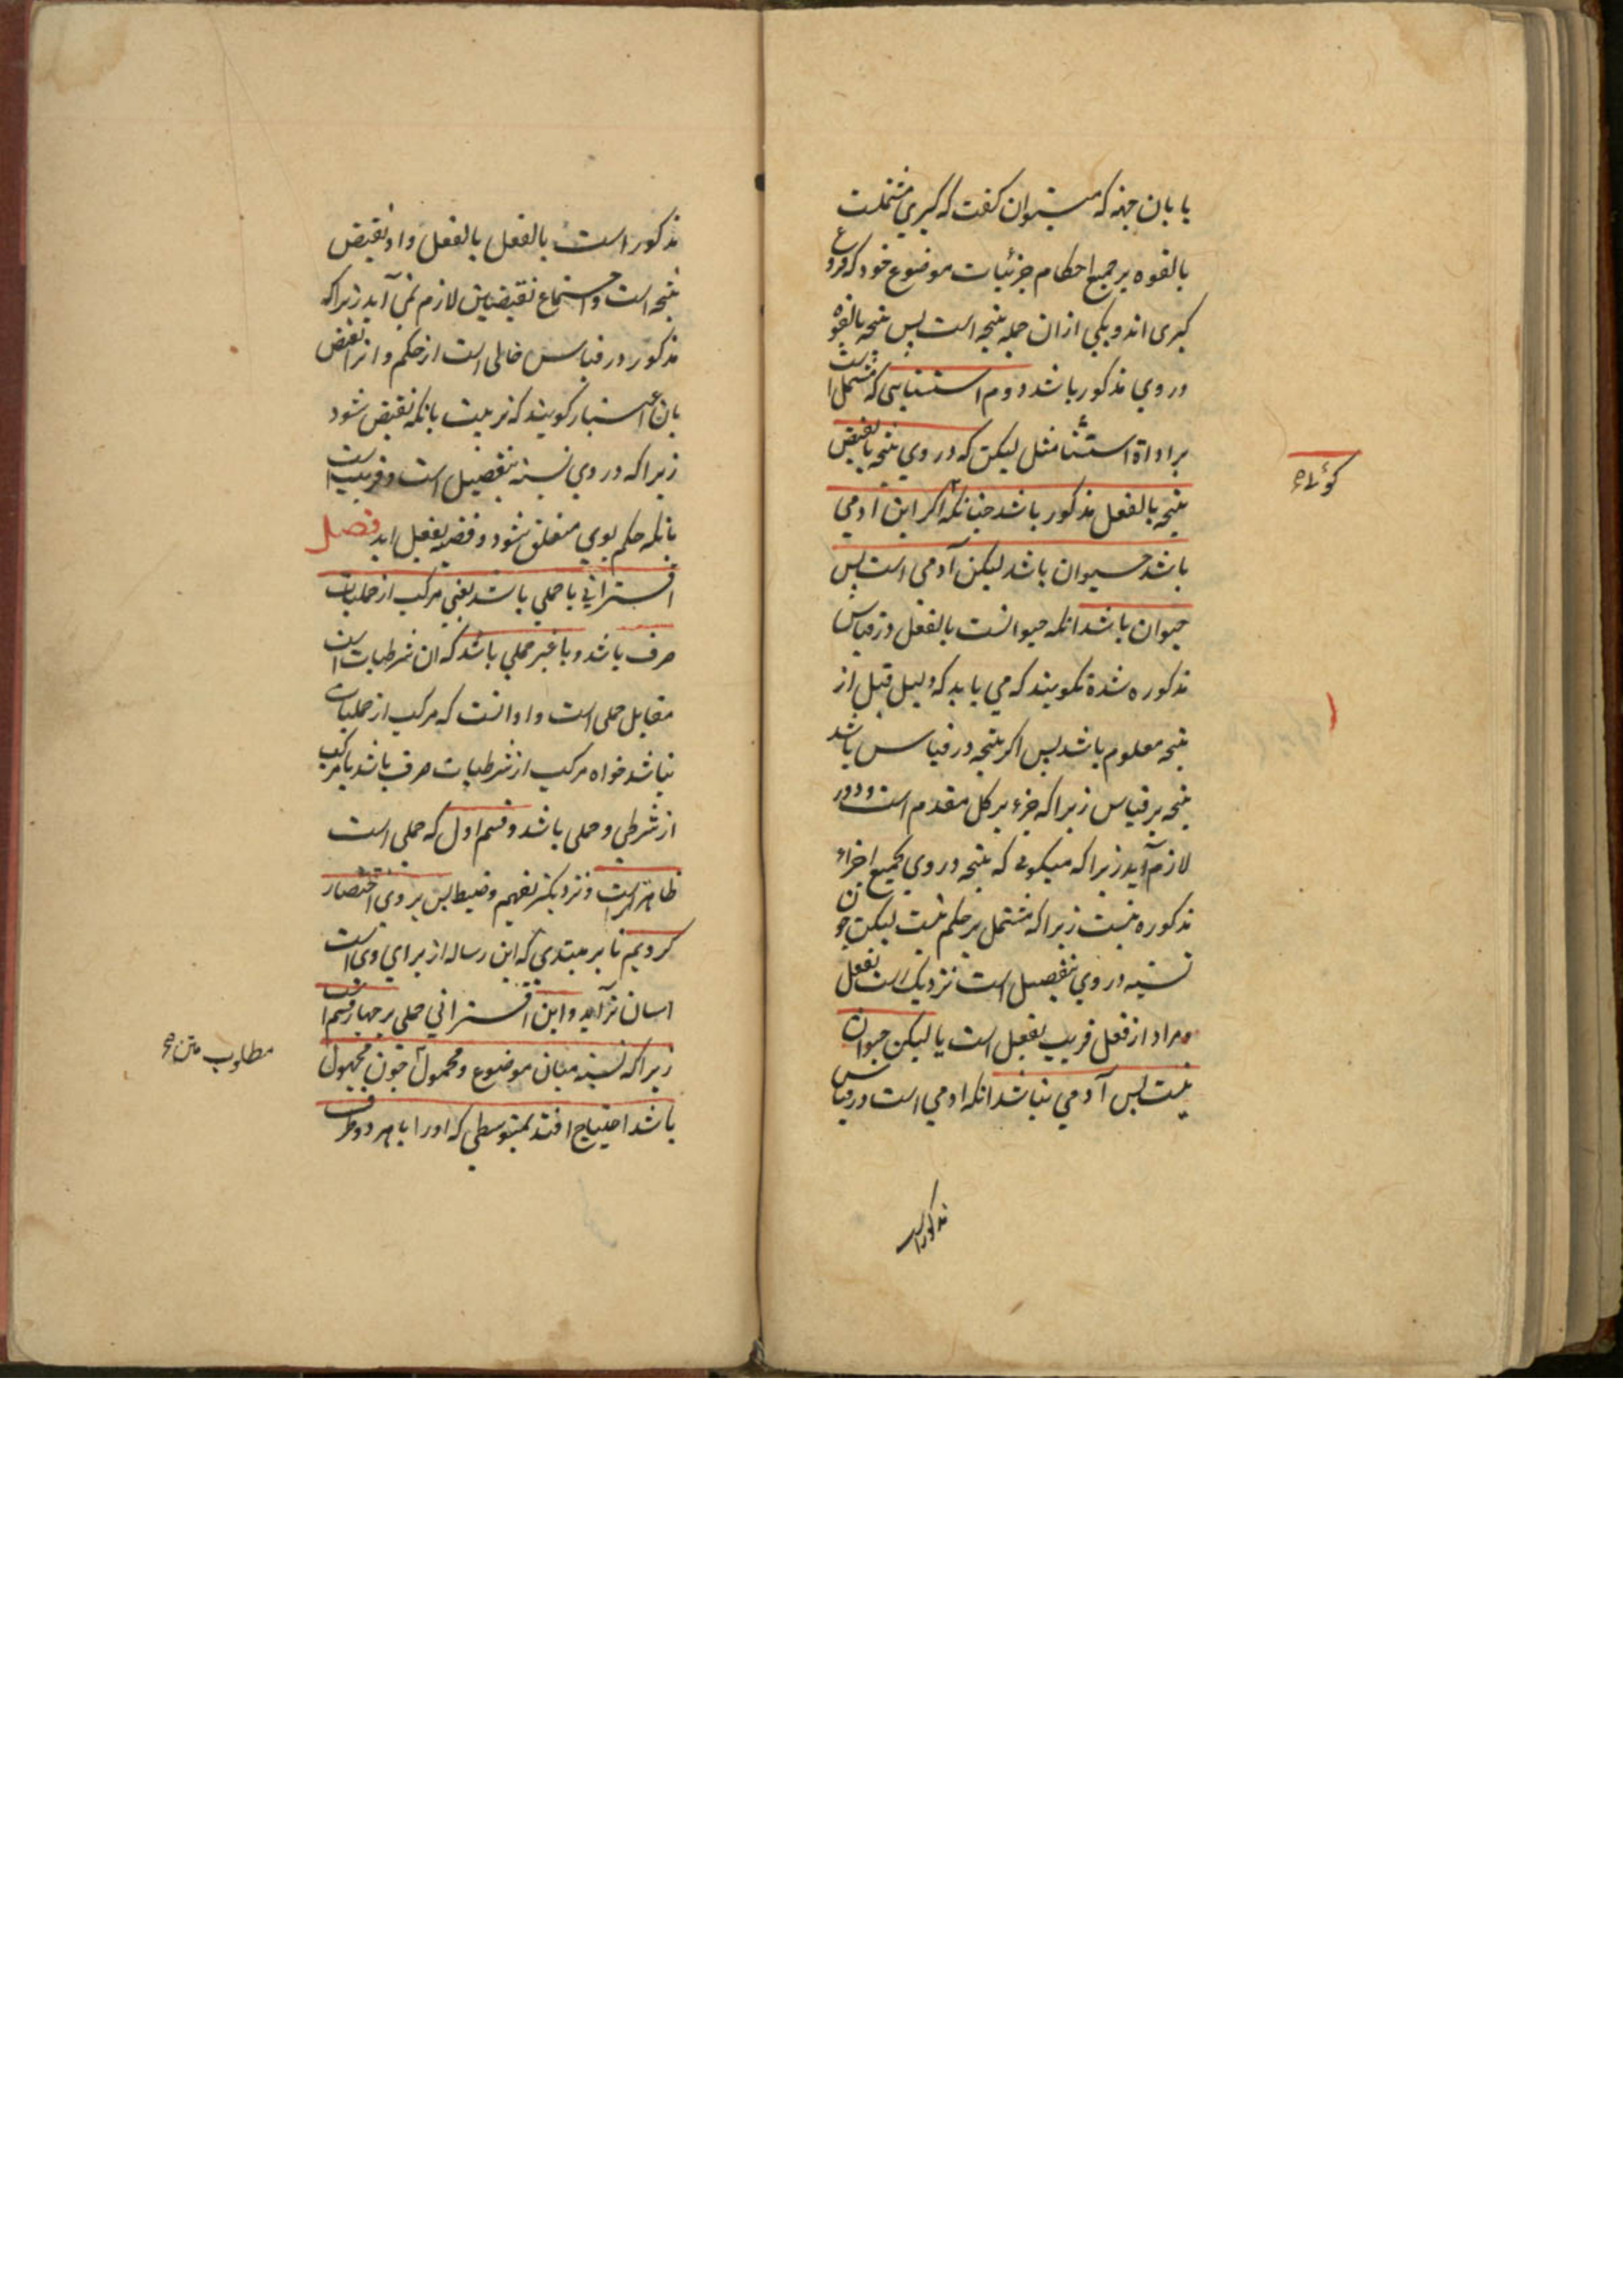 یا بان جهة که میتوان کفت که کبری مشتملست
بالقوه بر جمیع احکام جزئیات موضوع خود که فروع
کبری اند و یکی از ان جمله نتیجه است پس نتیجه بالقوه
در وی مذکور باشد دوم استثنایی که مشتمل است
بر اداة استثنا مثل لیکن که در وی نتیجه یا نقیض
نتیجه بالفعل مذکور باشد چنانکه اکر این ادمی
باشد حیوان باشد لیکن آدمی است پس
حیوان باشد انکه حیوانست بالفعل در قیاس
مذکوره شده نکویند که می باید که دلیل قبل از
نتیجه معلوم باشد پس اکر نتیجه در قیاس باشد
نتیجه بر قیاس زیرا که جزء بر کل مقدم است و دور
لازم آید زیرا که میکویی که نتیجه در وی بجمیع اجزاء
مذکوره نیست زیرا که مشتمل بر حکم نیست لیکن چون
نسبة در وی بتفصیل است نزدیک است بفعل
ومراد از فعل قریب بفعل است یا لیکن حیوان
نیست پس آدمی نباشد انکه ادمی است در قیاس
مذکور است
کوئلا
مذکور است بالفعل بالفعل واو نقیض
نتیجه است و اجتماع نقیضین لازم نمی آید زیرا که
مذکور در قیاس خالی است از حکم و انرا نقیض
بان اعتبار کویند که نزدیکست بانکه نقیض شود
زیرا که در وی نسبة بتفصیل است و قریب است
بانکه حکم بوی متعلق شود و قضیه بفعل اید فصل
اقترانی یا حملی باشد یعنی مرکب از حملیات
صرف باشد و یا غیر حملی باشد که ان شرطیات است
مقابل حملی است و او انست که مرکب از حملیات
نباشد خواه مرکب از شرطیات صرف باشد یا مرکب
از شرطی و حملی باشد و قسم اول که حملی است
ظاهرتر است و نزدیکتر بفهم و ضبط پس بر وی اختصار
کردیم تا بر مبتدی که این رساله از برای وی است
اسان تر آید و این اقترانی حملی بر چهار قسم است
زیرا که نسبة میان موضوع و محمول چون مجهول
باشد احتیاج افتد بمتوسطی که اورا با هر دو طرف
مطلوب متن